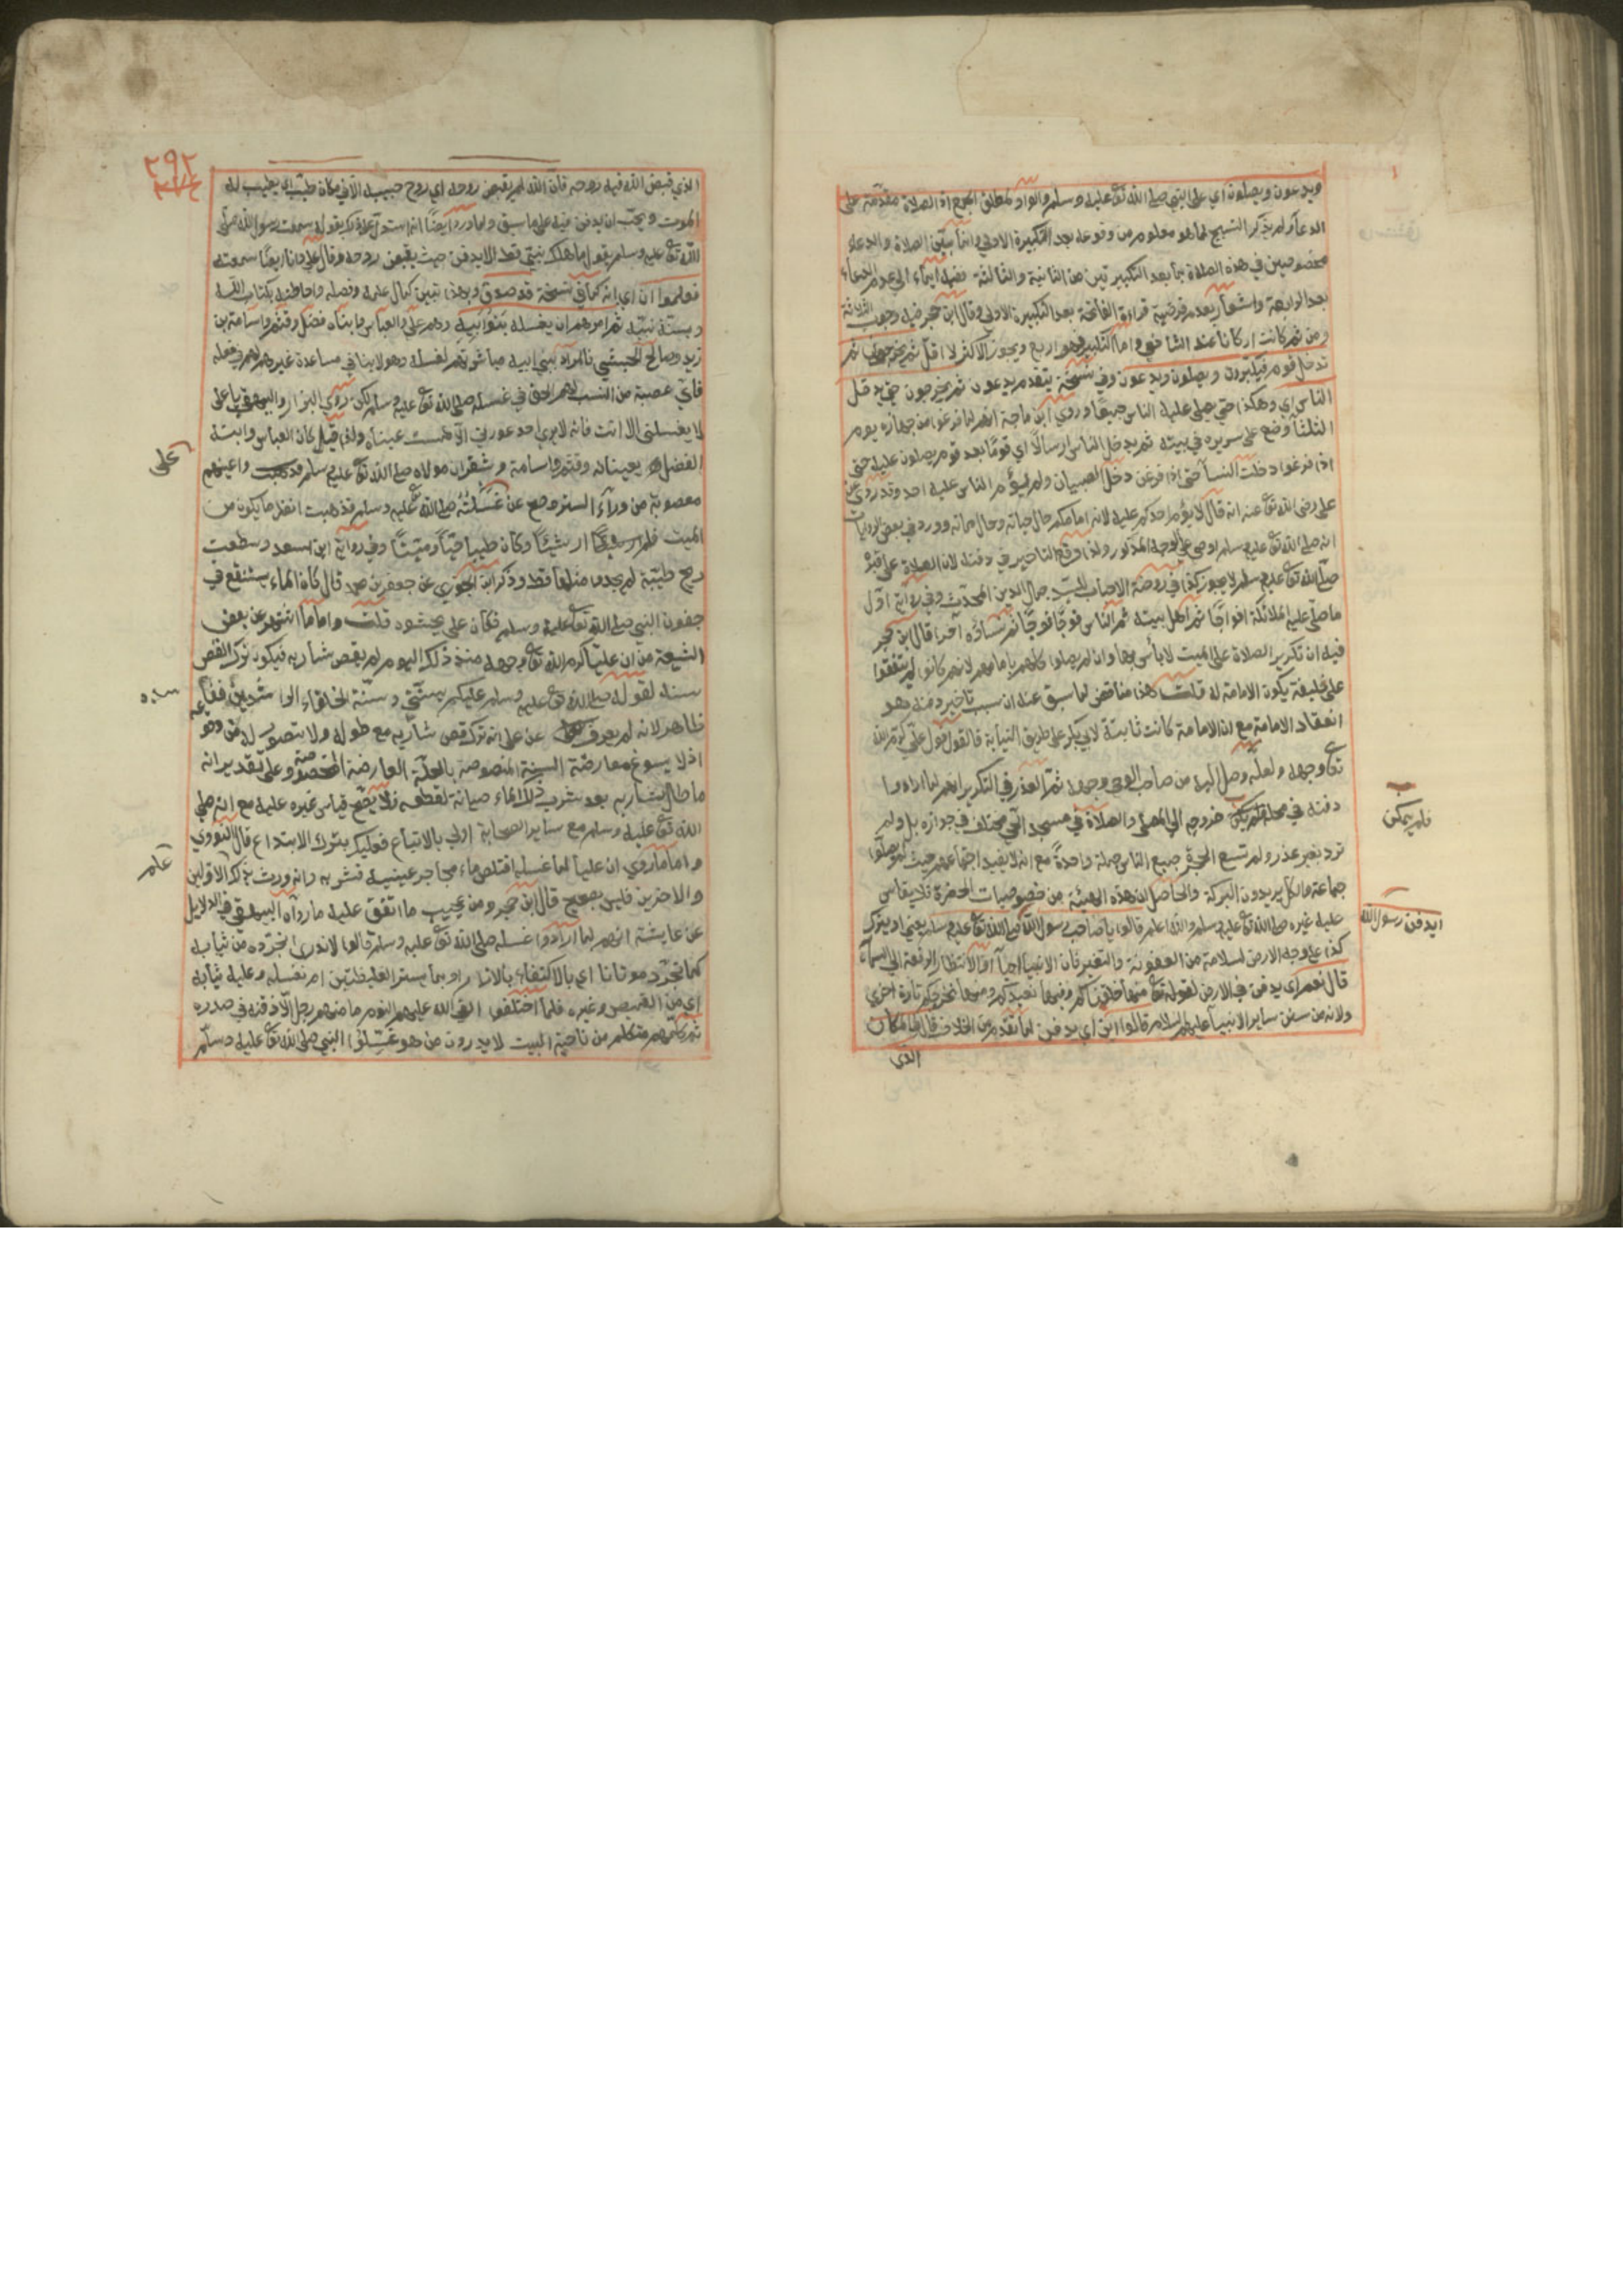 ويدعون ويصلون اي على النبي صلى الله تع عليه وسلم والواو لمطلق الجمع اذ الصلاة مقدمة على
الدعا ولم يذكر التسبيح لما هو معلوم من وقوعه بعد التكبيرة الاولى وانما بين الصلاة والدعاء
مخصوصين في هذه الصلاة بما بعد التكبيرتين من الثانية والثالثة ايماء الى عدم الدعاء
بعد الرابعة واشعار بعدم فرضية قراءة الفاتحة بعد التكبيرة الاولى وقال ابن حجر فيه وجوب الثلاثة
ومن ثم كانت اركانا عند الشافعي واما التكبير فهو اربع ويجوز الاكثر لا اقل ثم يخرجون ثم
تدخل قوم فيكبرون ويصلون ويدعون وفي نسخة بتقدم يدعون ثم يخرجون حتى يدخل
الناس اي وهكذا حتى صلى عليه الناس جميعا وروى ابن ماجة انهم لما فرغوا من جهازه يوم
الثلثا وضع على سريره في بيته ثم يدخل الناس ارسالا اي قوما بعد قوم يصلون عليه حتى
اذا فرغوا دخلت النسا حتى اذا فرغن دخل الصبيان ولم يؤم الناس عليه احد وقد روى عن
على رضى الله تع عنه انه قال لا يؤم احدكم عليه لانه امامكم حال حياته وحال مماته وورد في بعض الروايات
انه صلى الله تع عليه وسلم اوصى على الوجه المذكور ولذا وقع التاخير في دفنه لان الصلاة على قبره
صلى الله تع عليه وسلم لا يجوز كذا في روضة الاحباب للسيد جمال الدين المحدث وفي رواية اول
ما صلى عليه الملائكة افواجا ثم اهل بيته ثم الناس فوجا فوجا ثم نساؤه آخرا قال ابن حجر
فيه ان تكرير الصلاة على الميت لا باس بها وان لم يصلوا كلهم بامامهم لانهم كانوا لم يتفقوا
على خليفة يكون الامامة له قلت هذا مناقض لما سبق عنه ان سبب تاخير دفنه هو
انعقاد الامامة مع ان الامامة كانت ثابتة لابي بكر على طريق النيابة فالقول قول علي كرم الله
تع وجهه ولعله وصل اليه من صاحب الوحي وجهه ثم العذر في التكرير انهم لما ارادوا
دفنه في محله فلم يمكن خروجه الى المصلى والصلاة في مسجد الحي مختلف في جوازه بل ولم
ترد بغير عذر ولم تسع الحجرة جميع الناس جملة واحدة مع انه لا يفيد اجتماعهم حيث لم يصلوا
جماعة والكل يريدون البركة والحاصل ان هذه الهيئة من خصوصيات الحضرة فلا يقاس
عليه غيره صلى الله تع عليه وسلم والله اعلم قالوا يا صاحب رسول الله صلى الله تع عليه وسلم يعني او يترك
كذا على وجه الارض لسلامة من العفونة والتغير فان الانبيا احيا او الانتظار الرفعة الى السماء
قال نعم اي يدفن في الارض لقوله تع منها خلقناكم وفيها نعيدكم ومنها نخرجكم تارة اخرى
ولانه من سنن ساير الانبيا عليهم السلام قالوا اين اي يدفن لما تقدم من الخلاف قال في المكان
الذي
فلم يمكن
ايدفن رسول الله
٢٩٢
الذي قبض الله فيه روحه فان الله لم يقبض روحه اي روح حبيبه الا في مكان طيب اي يطيب له
الموت ويحب ان يدفن فيه على ما سبق ولما ورد ايضا انه استدل على ذلك بقوله سمعت رسول الله صلى
الله تع عليه وسلم يقول ما هلك نبي قط الا يدفن حيث يقبض روحه وقال علي وانا ايضا سمعته
فعلموا ان اي انه كما في نسخة قد صدق وبهذا تبين كمال علمه وفضله واحاطته بكتاب الله
وسنة نبيه ثم امرهم ان يغسله بنو ابيه وهم علي والعباس وابناه فضل وقثم واسامة بن
زيد وصالح الحبشي فالمراد ببني ابيه مباشرتهم لغسله وهو لا ينافي مساعدة غيرهم لهم
فان عصبة من النسب لهم الحق في غسله صلى الله تع عليه وسلم لكن روى البزار والبيهقي يا على
لا يغسلنى الا انت فانه لا يرى احد عورتي الا طمست عيناه ولذا قيل كان العباس وابنه
الفضل يعينانه وقثم واسامة وشقران مولاه صلى الله تع عليه وسلم واعينهم
معصوبة من وراء الستر وصح عن علي غسلته صلى الله تع عليه وسلم فذهبت انظر ما يكون من
الميت فلم ار شيئا وكان طيبا حيا وميتا وفي رواية ابن سعد وسطعت
ريح طيبة لم يجدوا مثلها قط وذكر ابن الجوزي عن جعفر بن محمد قال كان الماء يستنقع في
جفون النبي صلى الله تع عليه وسلم فكان على يحشوه قلت واما ما اشتهر عن بعض
الشيعة من ان عليا كرم الله تع وجهه منذ ذلك اليوم لم يقص شاربه فيكون ترك القص
سنة لقوله صلى الله تع عليه وسلم عليكم بسنتي وسنة الخلفاء الراشدين
ظاهر لانه لم يعرف عن على انه ترك قص شاربه مع طوله ولا يتصور له
اذ لا يسوغ معارضة السنة المنصوصة بالعلة العارضة المخصوصة وعلى تقدير انه
ما طال شاربه بعد شرب ذلك الماء صيانة لقطعه فلا يصح قياس غيره عليه مع انه صلى
الله تع عليه وسلم مع ساير الصحابة اولى بالاتباع فعليك بترك الابتداع قال النووي
واما ما روي ان عليا لما غسله اقتلص ماء محاجر عينيه فشربه وانه ورث بذلك الاولين
والاخرين فليس بصحيح قال ابن حجر ومن عجيب ما اتفق عليه ما رواه البيهقي في الدلايل
عن عايشة انهم لما ارادوا غسله صلى الله تع عليه وسلم قالوا لا ندري انجرده من ثيابه
كما نجرد موتانا اي بالاكتفاء بالازار او بما يستر الغليظتين ام نغسله وعليه ثيابه
اي من القميص وغيره فلما اختلفوا القى الله عليهم النوم ما منهم رجل الا ذقنه في صدره
ثم كلمهم متكلم من ناحية البيت لا يدرون من هو غسلوا النبي صلى الله تع عليه وسلم
على
علم